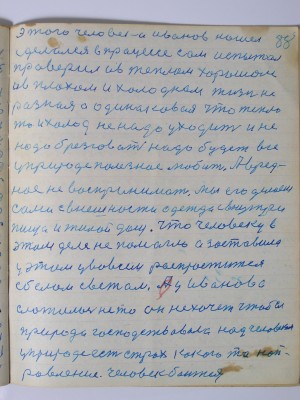 этого человека Иванов нашел 88
сделался в процессе сам испытал
проверил и в теплом хорошом
и в плохом и холодном жизнь не
разная а одинаковая что тепло
то и холод не надо уходить и не
надо брезговать надо будет все
у природе полезное любить. А вред-
ное не воспринимать. Мы его душим
сами с внешности одежда внутри
пища и жилой дом. Что человеку в
этом деле не помогло а заставило
у этом у во всем распроститься
с белом светом. А у Иванова
сложилось не то он не хочет чтобы
природа господствовала над человеком
у природе есть страх какого то нап-
равление. Человек боится